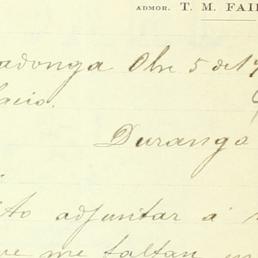 ADMOR. T. M. FAI
adonga Obre 5 de 19
lacio.
Durango
ito adjuntar á
ue me faltan